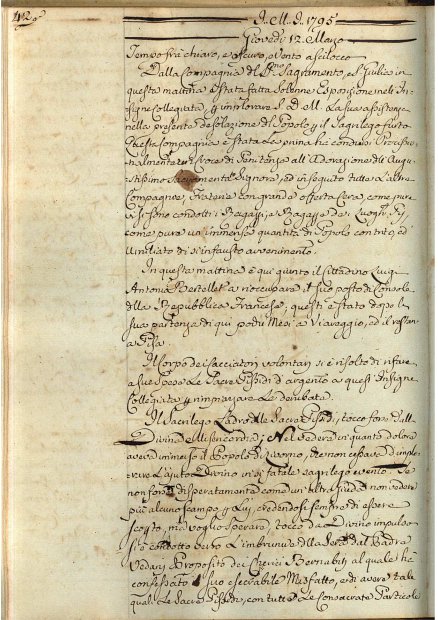 412
J. M. J. 1795
Giovedi 12. Marzo
Tempo frà chiaro, e oscuro, e vento a scilocco
Dalla Compagnia del SS.mo Sagramento, e S. Giulia in
questa mattina è stata fatta solenne Esposizione nell' In-
signe Collegiata, p implorare S. D. M. la sua assistenza
nella presente desolazione del Popolo p il sagrilego furto
Questa Compagnia è stata la prima ha condursi Processio-
nalmente in Croce di Penitenza all' Adorazione dell' Augu-
stissimo Sacramental Signore, ed in seguito tutte l'altre
Compagnie, Fraterie con grande offerta Cera, come pure
vi si sono condotti i Ragazzi, e Ragazze dei Luoghi Pij
come pure un immensa quantità di Popolo contrito, ed
Umiliato di sì infausto avvenimento.
In questa mattina è qui giunto il Cittadino Luigi
Antonio Bertellet a rioccupare il suo posto di Console
della Repubblica Francese, questi è stato dopo la
sua partenza di qui pochi Mesi a Viareggio, ed il restan-
a Pisa
Il Corpo dei Cacciatori volontari si è risolto di rifare
a sue spese le Sacre Pissidi d'argento a quest' Insigne
Collegiata p rimpiazzare le derubate.
Il Sacrilego Ladro delle Sacre Pissidi, tocco forse dalla
Divina Misericordia; Nel vedere in quanto dolore
aveva immerso il Popolo di Livorno, che non cessava d'imple-
rare l'ajuto Divino in sì fatale sagrilego evento. Se
non forse disperatamente come da un' altra guida non vedere
più alcuno scampo p Lui, credendosi sempre di essere
scoperto, ma voglio sperare, tocco da Divino impulso
si è condotto verso l'imbrunire della sera dal Padre
Vedani Proposito dei Cherici Bernabiti al quale ha
confessato il suo esecrabile Misfatto, e di avere tale
quali le Sacre Pissidi, con tutte le Consacrate Particole